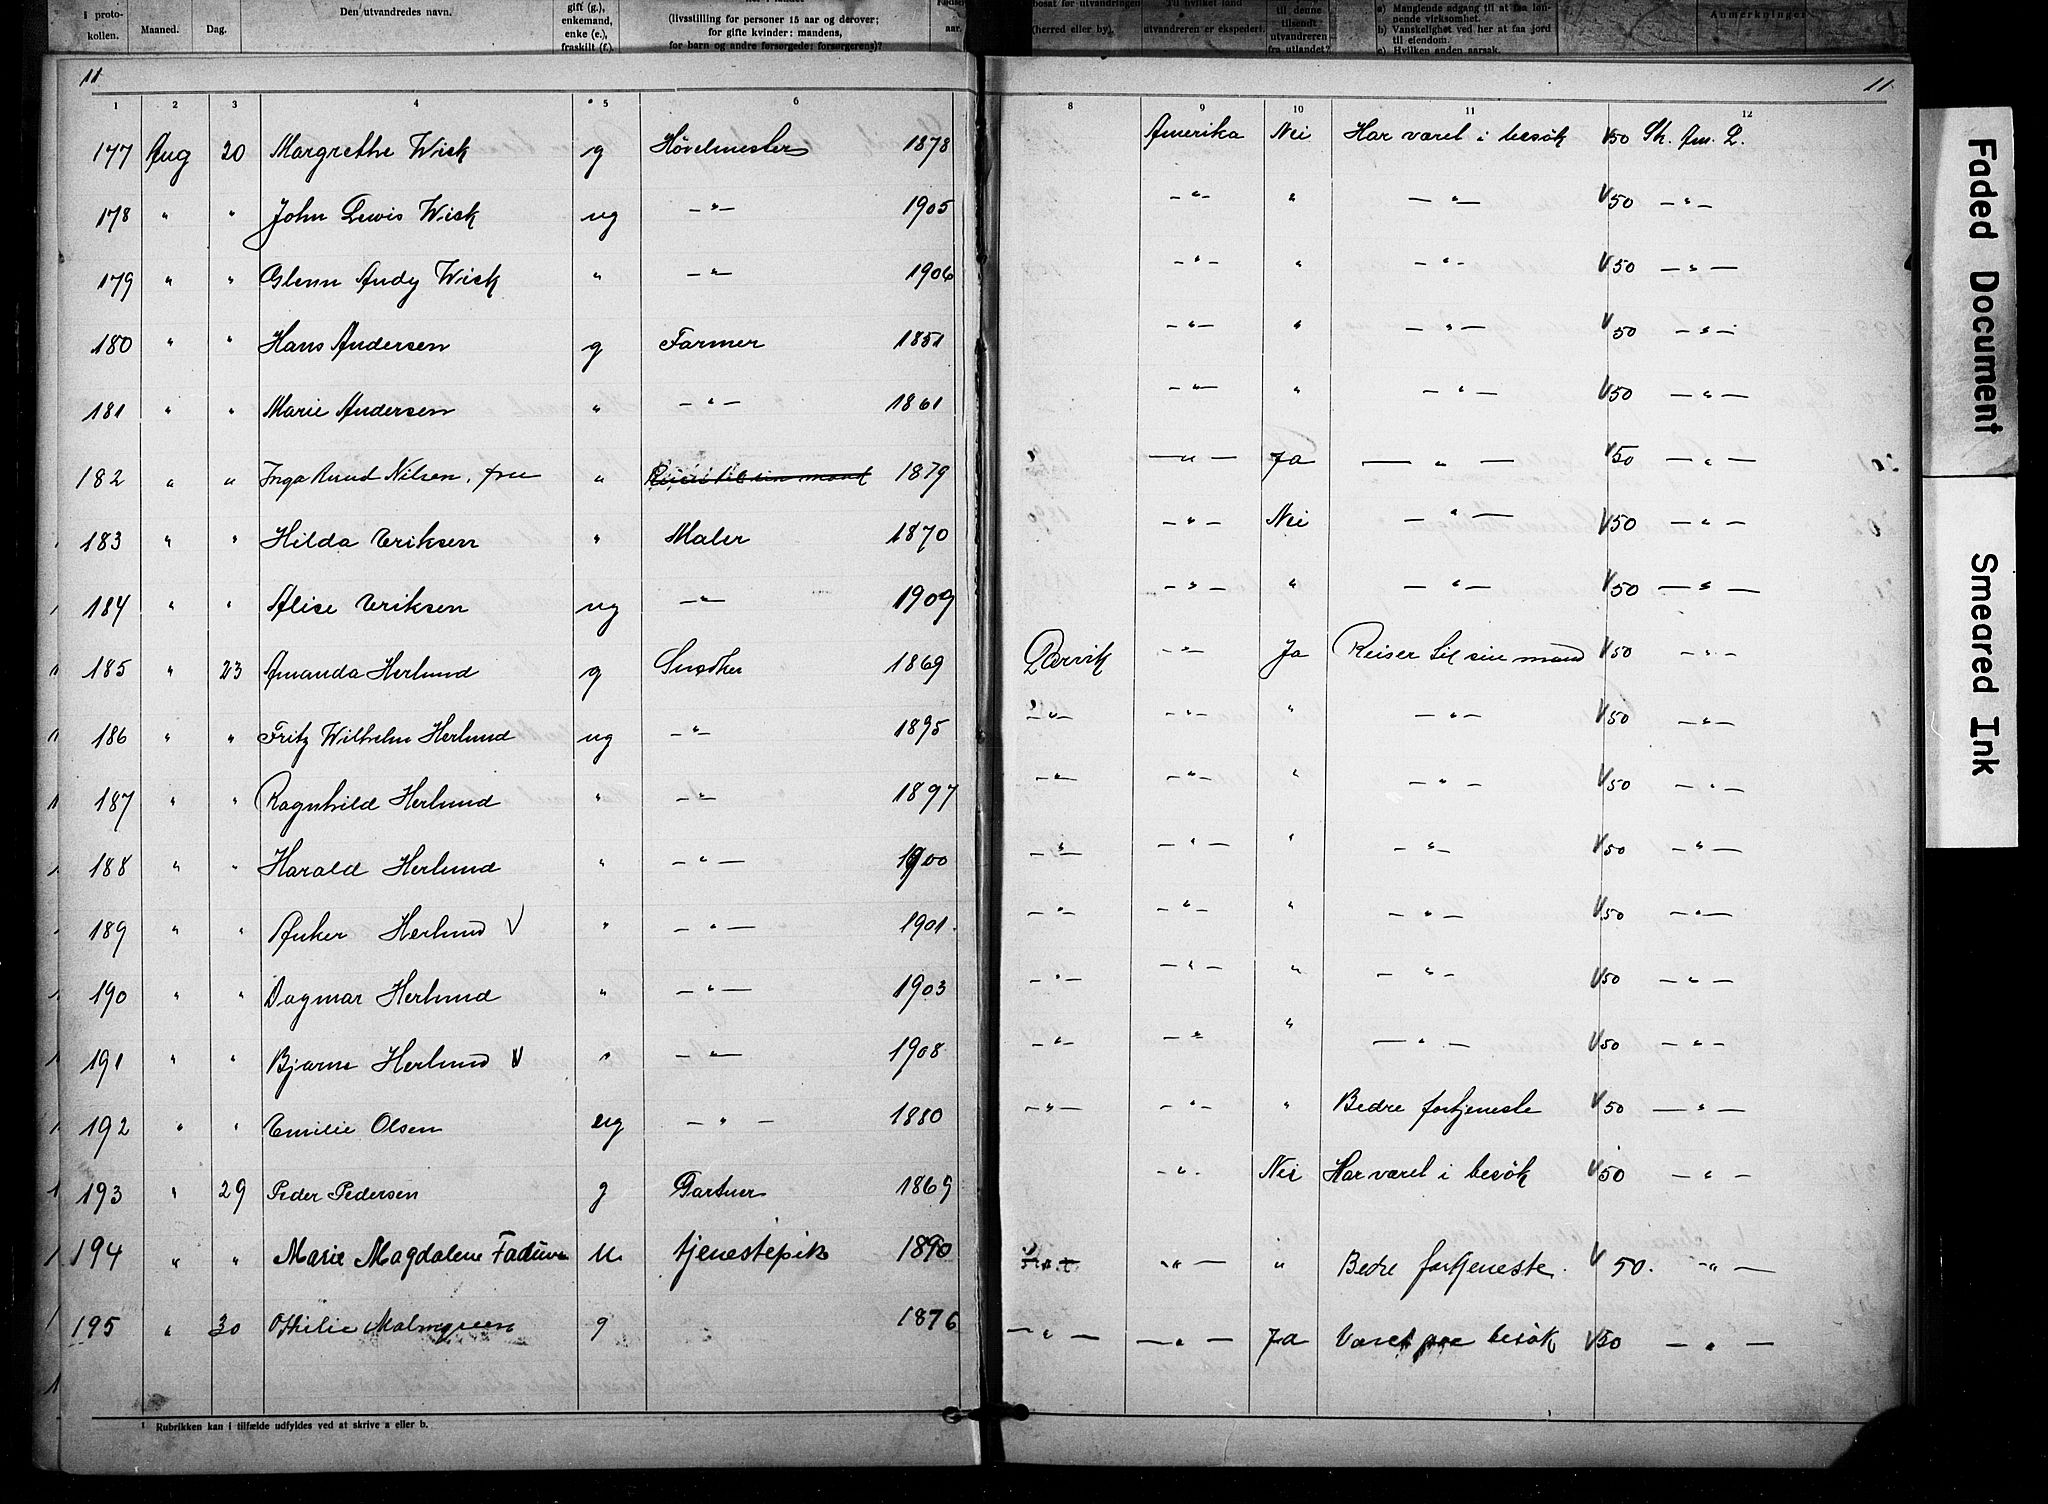 i proto-
kollen.
Maaned.
Dag.
Den utvandredes navn.
gift (g.),
enkemand,
enke (e.),
fraskilt (f.)
(livsstilling for personer 15 aar og derover;
for gifte kvinder: mandens,
for barn og andre forsørgede: forsørgerens)?
aar.
bosat før utvandringen
(herred eller by).
Til hvilket land
utvandreren er ekspedert
til denne
tilsendt
utvandreren
fra utlandet?
a) Manglende adgang til at faa løn-
nende virksomhet.
b) Vanskelighet ved her at faa jord
til eiendom.
c) Hvilken anden aarsak.
Anmerkninger
11 11
1 2 3 4 5 6 8 9 10 11 12
177 Aug 20 Margrethe Wick g Hövelmester 1878 Amerika Nei Har været i besök V50 Sk. Am. L.
178 " " John Lewis Wick ug -"- 1905 -"- " -"- V50 -"-
179 " " Glenn Andy Wick " -"- 1906 -"- " -"- V50 -"-
180 " " Hans Andersen g Farmer 1851 -"- " -"- V50 -"-
181 " " Marie Andersen " -"- 1861 -"- " -"- V50 -"-
182 " " Inga Ruud Nilsen, fru " Reiser til sin mand 1879 -"- Ja -"- V50 -"-
183 " " Hilda Eriksen " Maler 1870 -"- Nei -"- V50 -"-
184 " " Alise Eriksen ug -"- 1909 -"- " -"- V50 -"-
185 " 23 Amanda Herlund g Snedker 1869 -"- Ja Reiser til sin mand V50 -"-
186 " " Fritz Wilhelm Herlund ug -"- 1895 -"- -"- " -"- V50 -"-
187 " " Ragnhild Herlund " -"- 1897 -"- -"- " -"- V50 -"-
188 " " Harald Herlund " -"- 1900 -"- -"- " -"- V50 -"-
189 " " Anker Herlund V " -"- 1901 -"- -"- " -"- V50 -"-
190 " " Dagmar Herlund " -"- 1903 -"- -"- " -"- V50 -"-
191 " " Bjarne Herlund V " -"- 1908 -"- -"- " -"- V50 -"-
192 " " Emilie Olsen ug -"- 1880 -"- -"- " Bedre fortjeneste V50 -"-
193 " 29 Peder Pedersen g Gartner 1869 -"- Nei Har været i besök V50 -"-
194 " " Marie Magdalene u. tjenestepik 1890 -"- " Bedre fortjeneste. V 50. -"-
195 " 30 Othilie Malmgreen g 1876 -"- -"- Ja Været paa besök V50 -"-
¹ Rubrikken kan i tilfælde udfyldes ved at skrive a eller b.
Faded Document
Smeared Ink